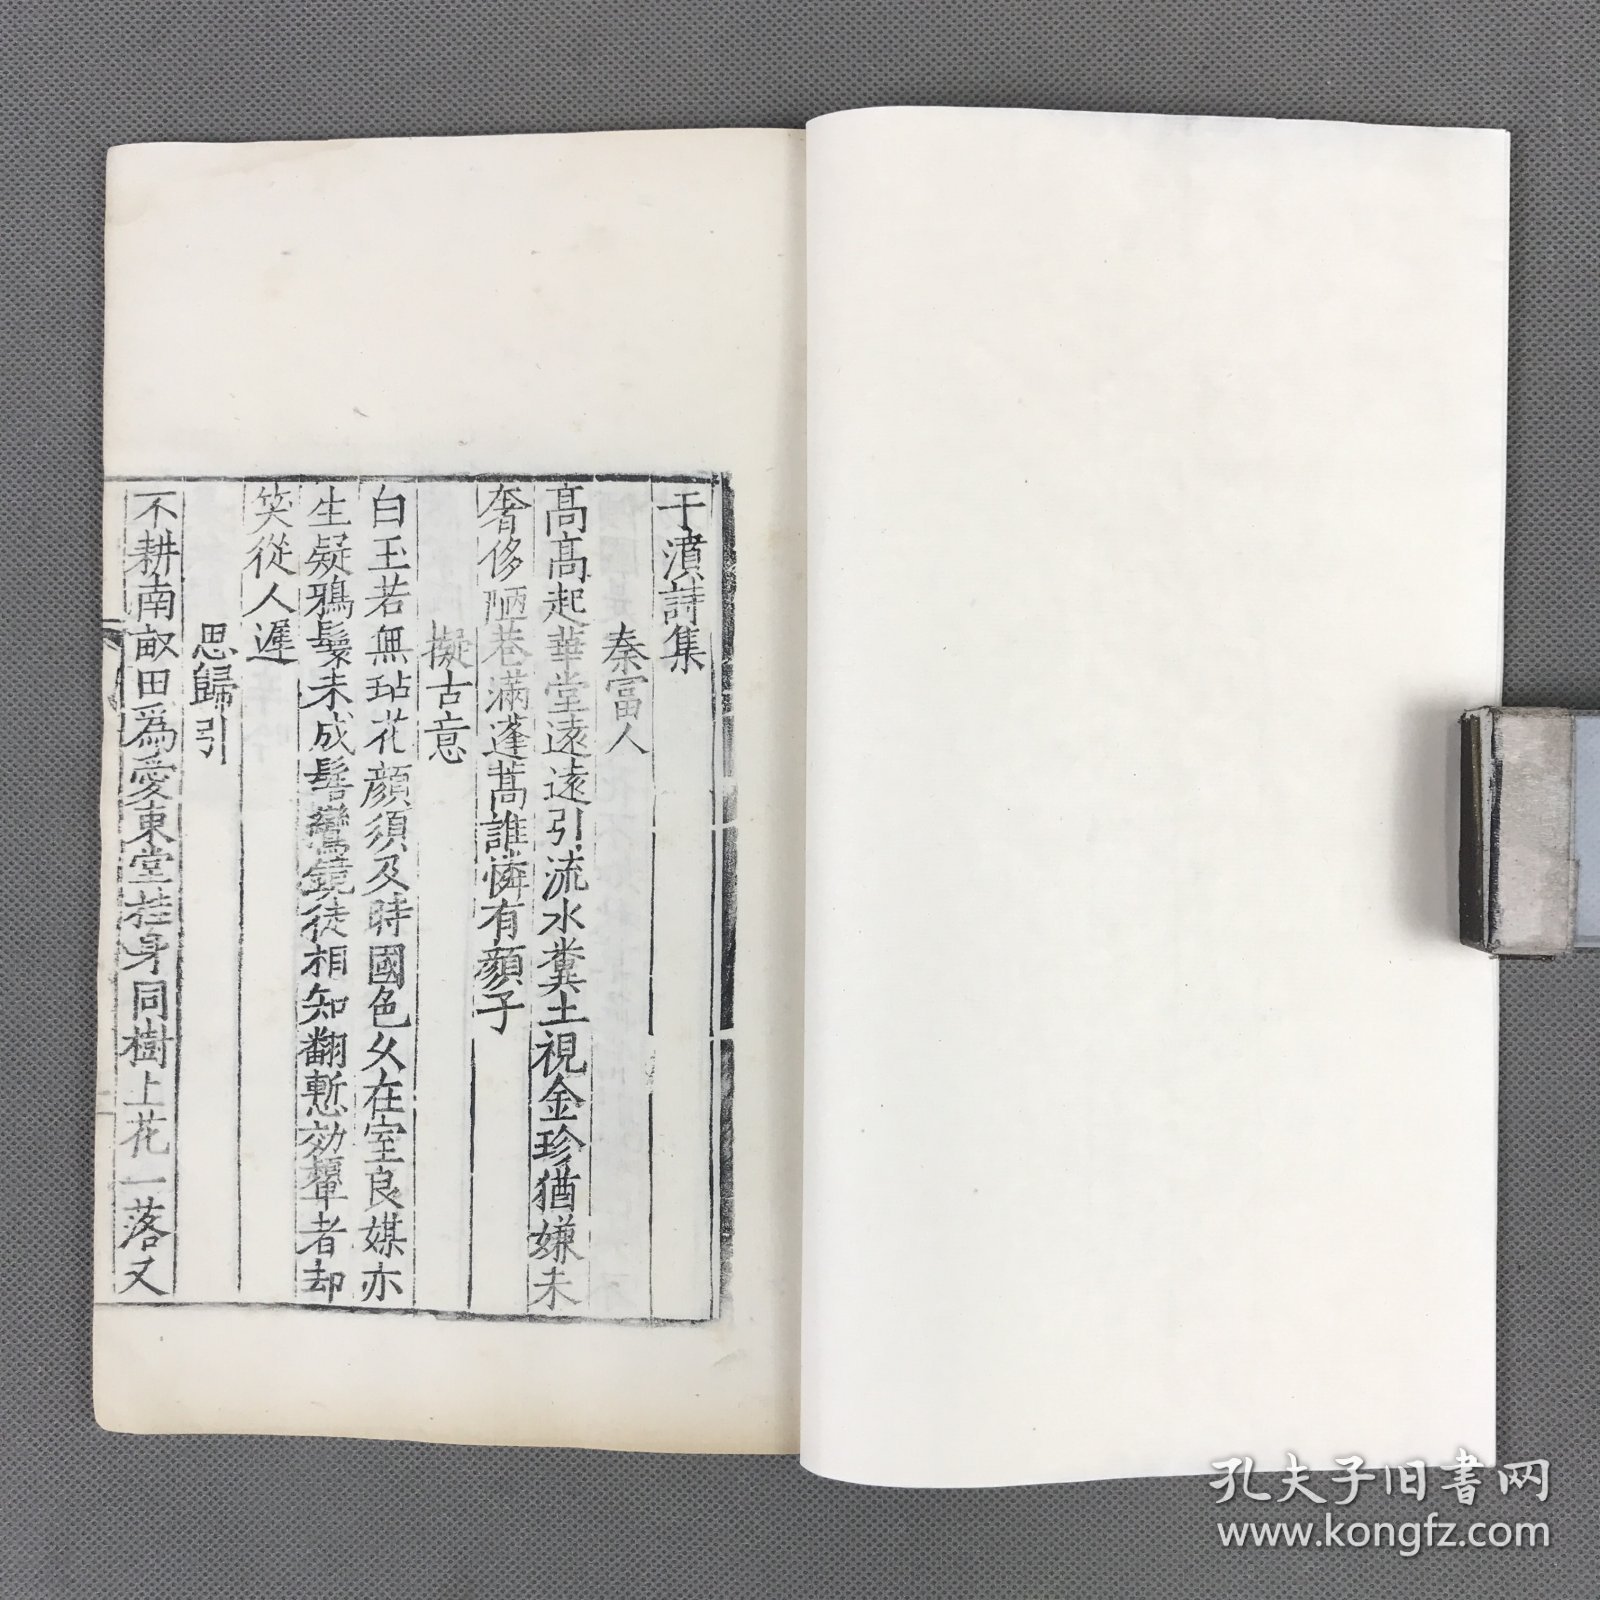 于濆詩集
秦富人
高高起華堂遠遠引流水糞土視金珍猶嫌未
奢侈陋巷滿蓬蒿誰憐有顏子
擬古意
白玉若無玷花顏須及時國色久在室良媒亦
生疑鴉鬢未成髻鸞鏡徒相知翻慙効顰者却
笑從人遲
思歸引
不耕南畝田爲愛東堂桂身同樹上花一落又
孔夫子旧书网
www.kongfz.com